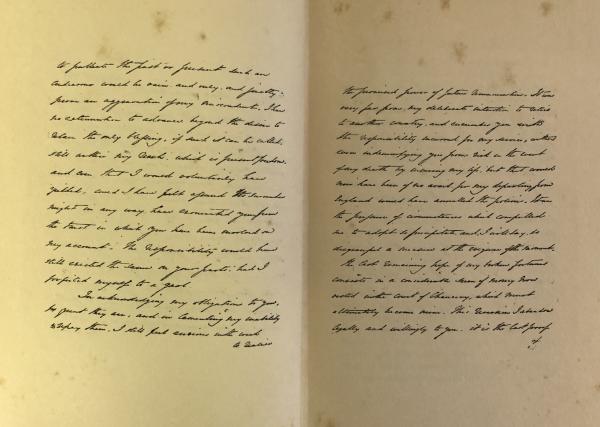 to palliate the past or present such an
endeavour would be vain and only, and justly,
an aggravation of my misconduct. I have
no extenuation to advance beyond the desire to
retain the only blessing, if such it can be called,
still within my reach, which is present freedom.
and even that I would voluntarily have
yielded, could I have felt assured the surrender
might in any way have exonerated you from
the trust in which you have been involved on
my account. The responsibility would have
still exerted the same on your parts, had I
forfeited myself to a gaol
In acknowledging my obligations to you,
great they are, and in lamenting my inability
to repay them, I still feel anxious with such
a
the promised power of future It was
very far from my deliberate intention to retire
to another country, and encumber you with
the responsibility incurred for my service, without
even indemnifying you from risk in the event
of my death by insuring my life, but that would
now have been of no avail for my departing from
England would have annulled the policies. It was
the pressure of circumstances which compelled
me to adopt so precipitate and, I will say, so
disgraceful a measure at the exigence of the moment.
the last remaining hope of my broken fortunes
consists in a considerable sum of money now
vested in the court of Chancery, which must
ultimately become mine. This
legally and willingly to you. it is the last proof
of